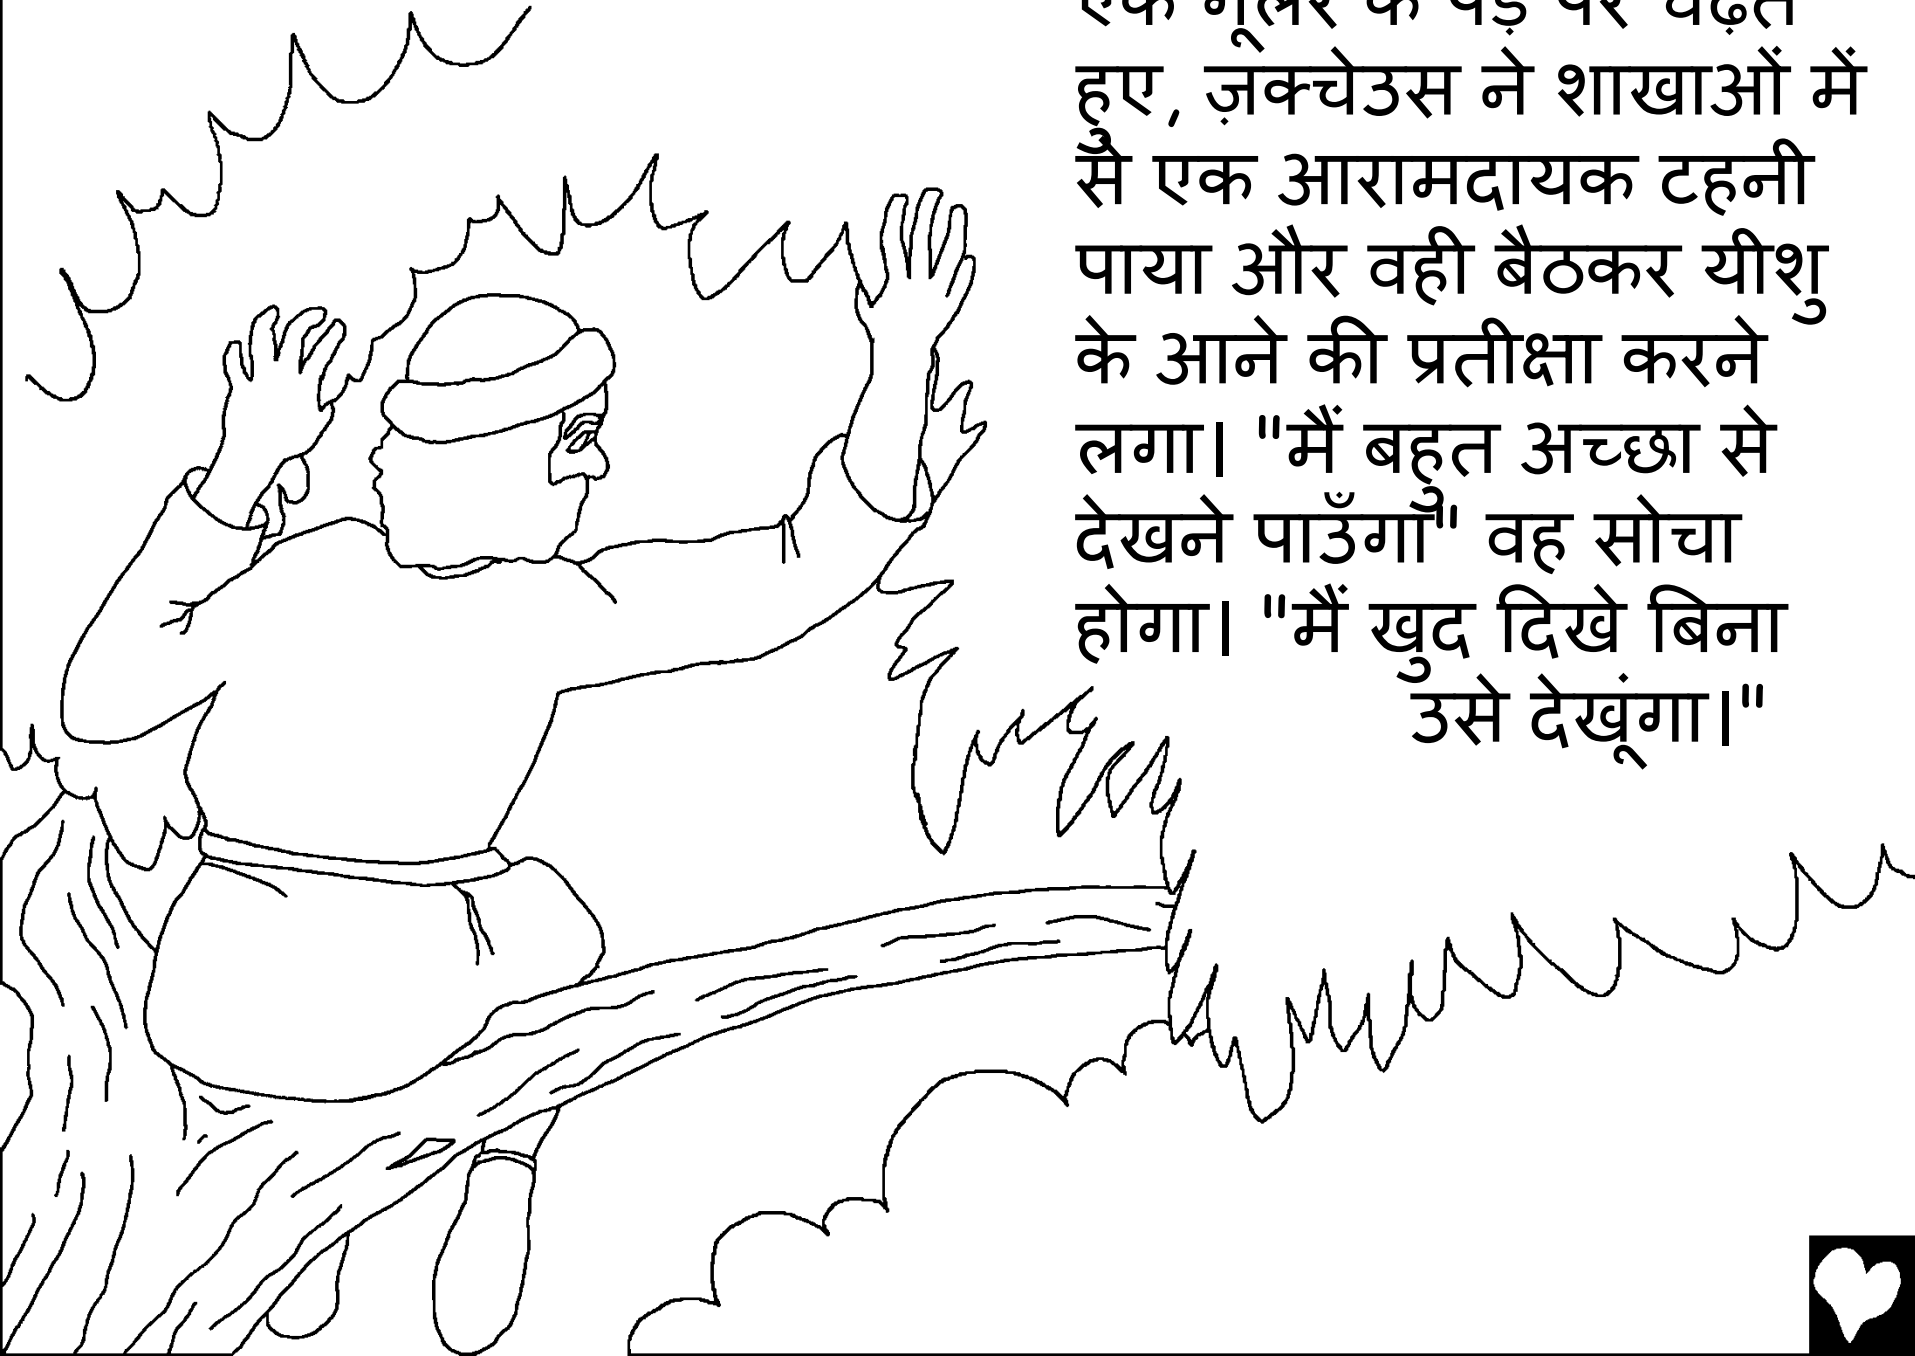 एक गूलर के पेड़ पर चढ़ते
हुए, ज़क्चेउस ने शाखाओं में
से एक आरामदायक टहनी
पाया और वही बैठकर यीशु
के आने की प्रतीक्षा करने
लगा। "मैं बहुत अच्छा से
देखने पाउँगा" वह सोचा
होगा। "मैं खुद दिखे बिना
उसे देखूंगा।"